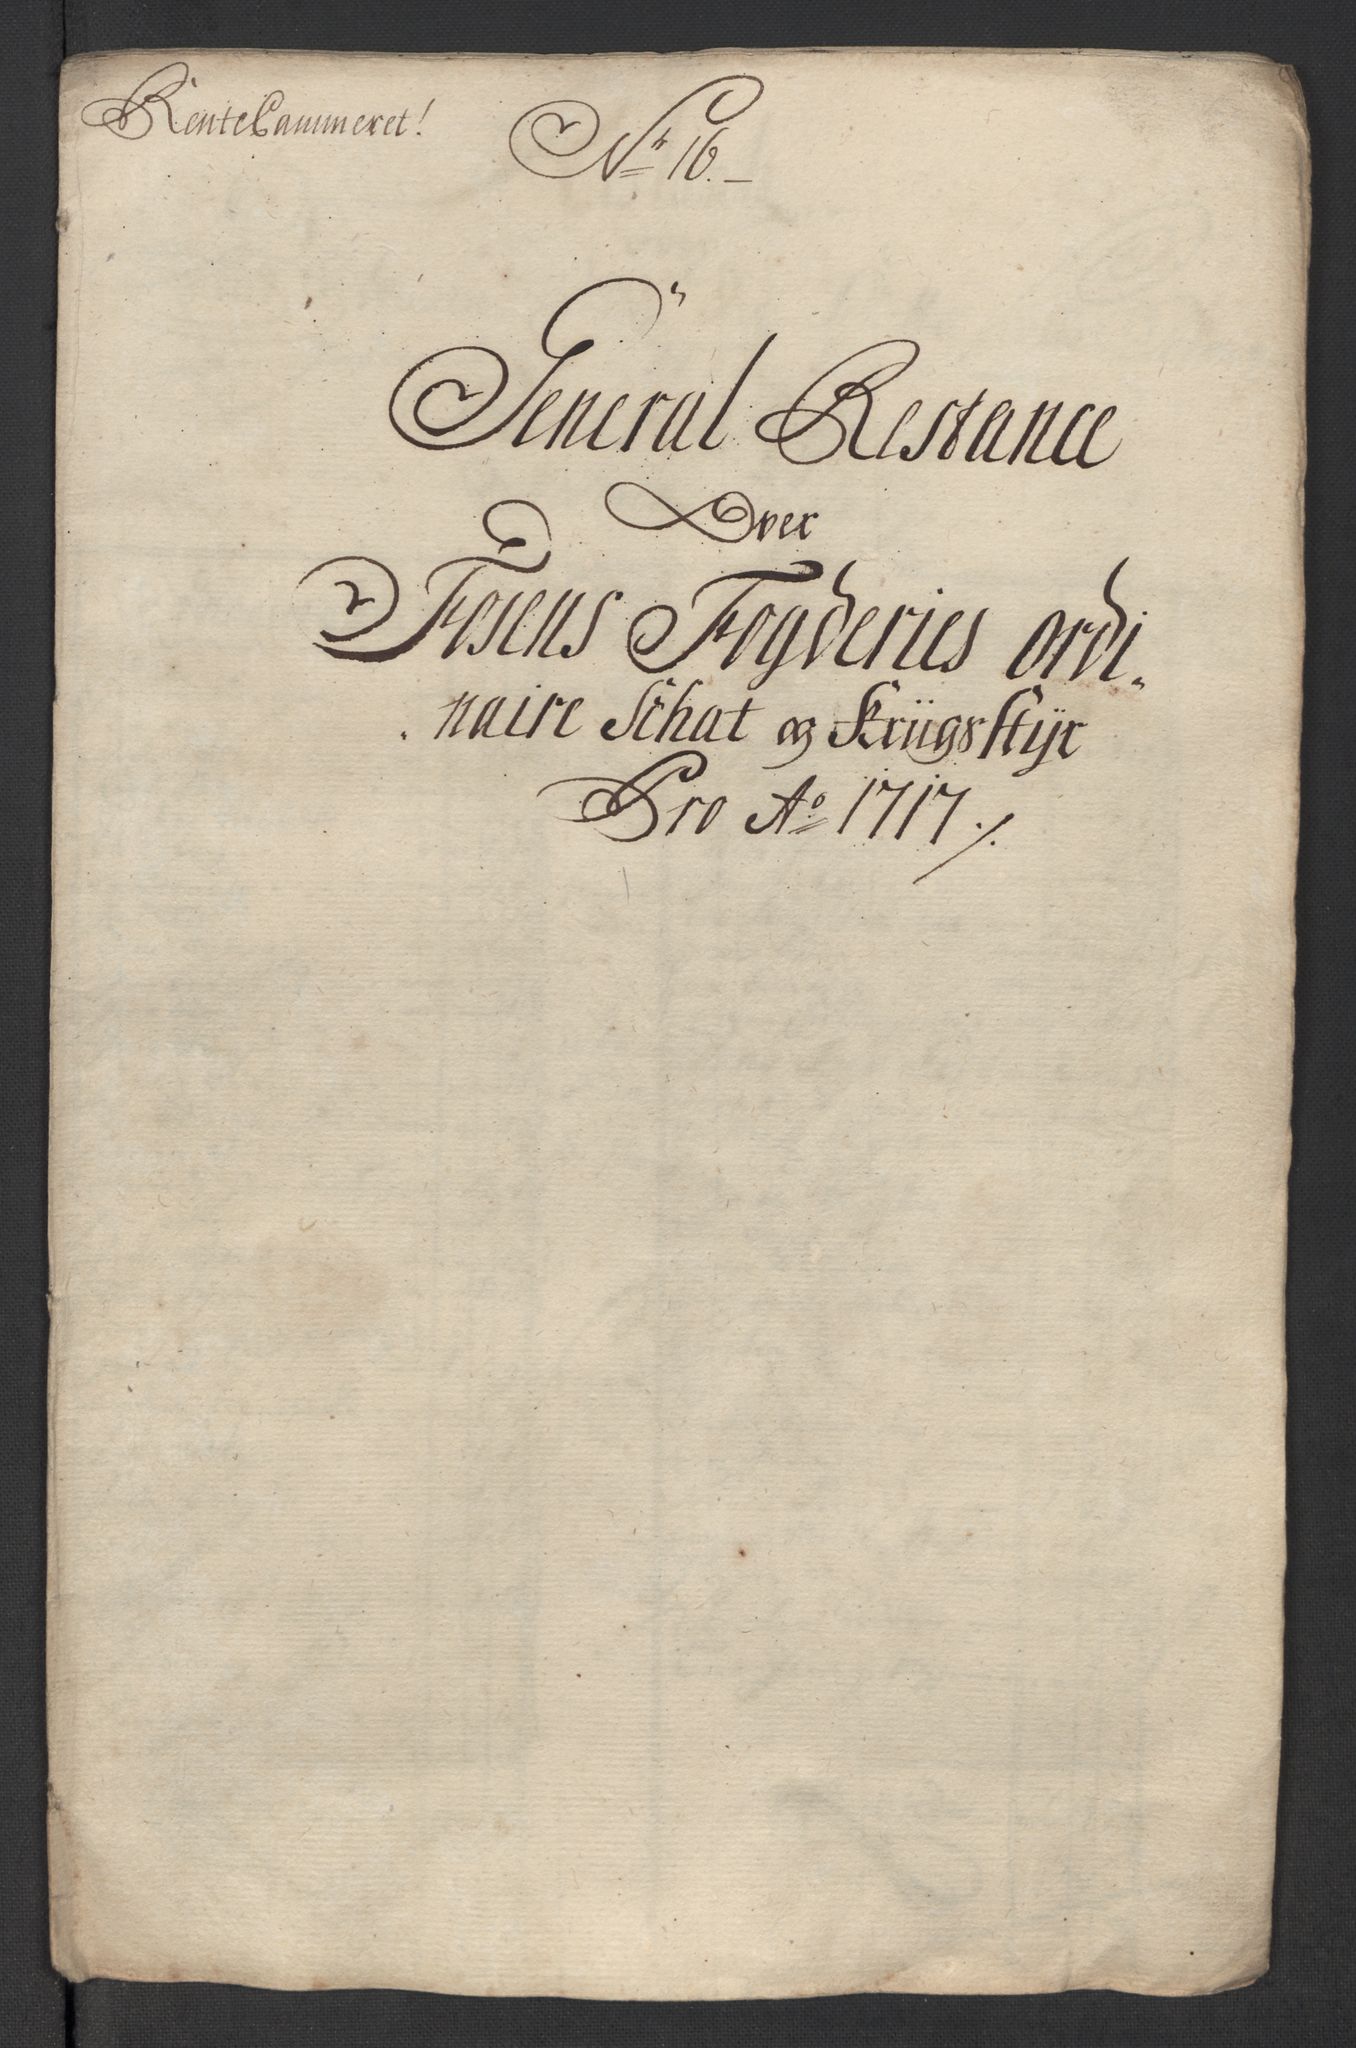 RenteCammeret!
No 16.
General Restance
Over
Fosens Fogderies ordi-
naire Schat og Kriigs Styr
Pro Ao 1717 ./.